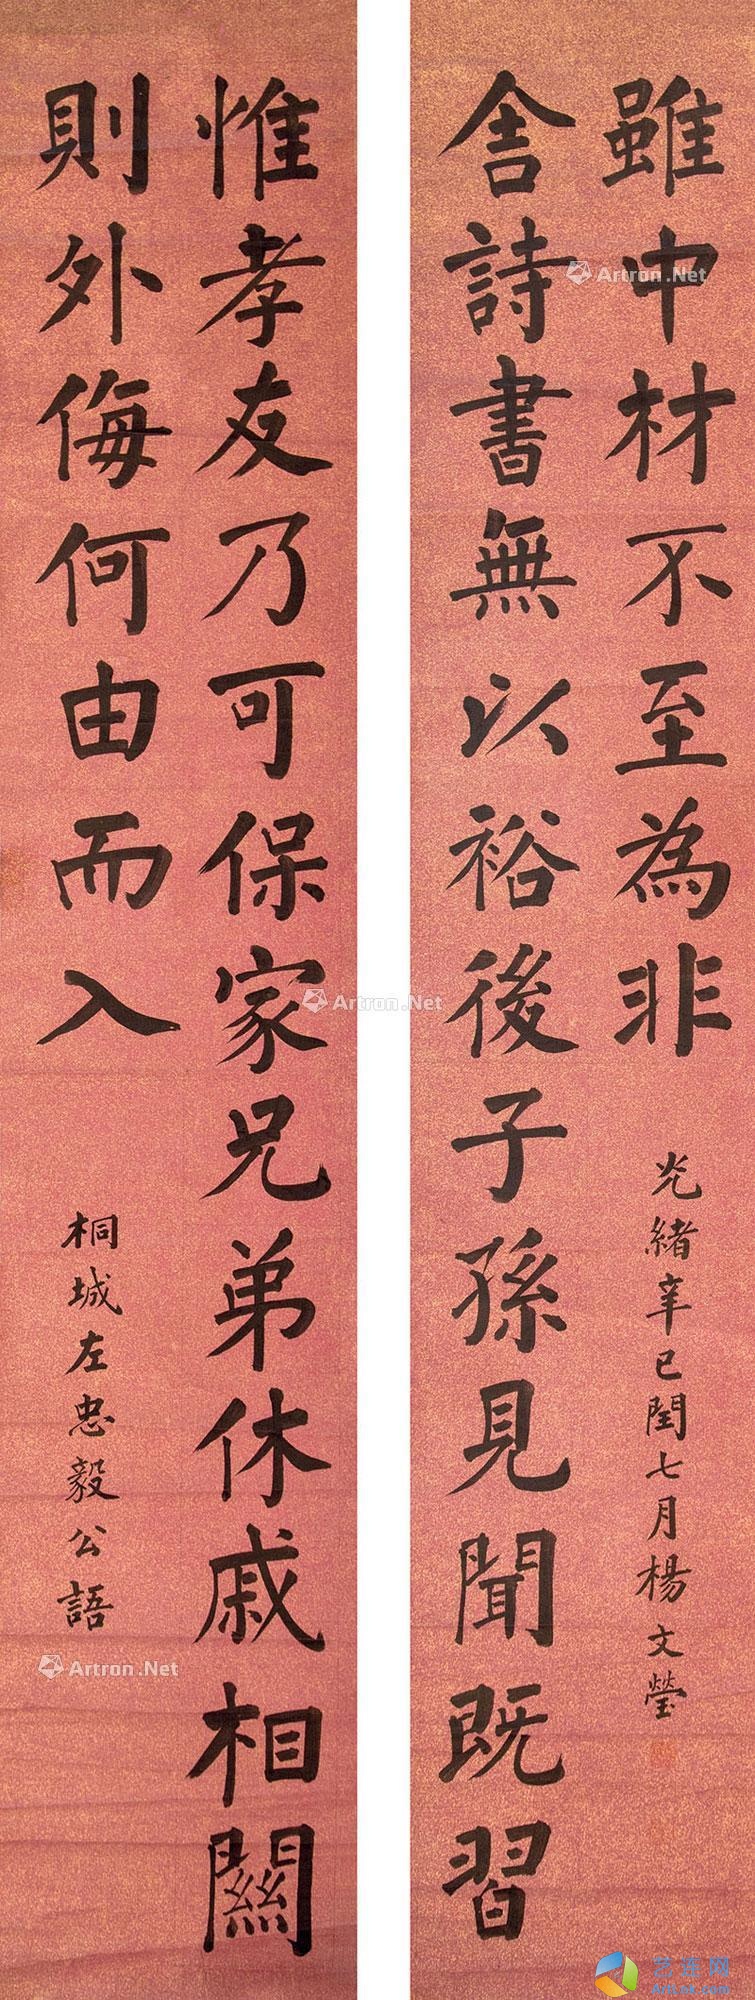 惟孝友乃可保家兄弟休戚相關
則外侮何由而入
桐城左忠毅公語
舍詩書無以裕後子孫見聞既習
雖中材不至為非
光緒辛巳閏七月楊文瑩
Artron.Net
Artron.Net
Artron.Net
艺连网